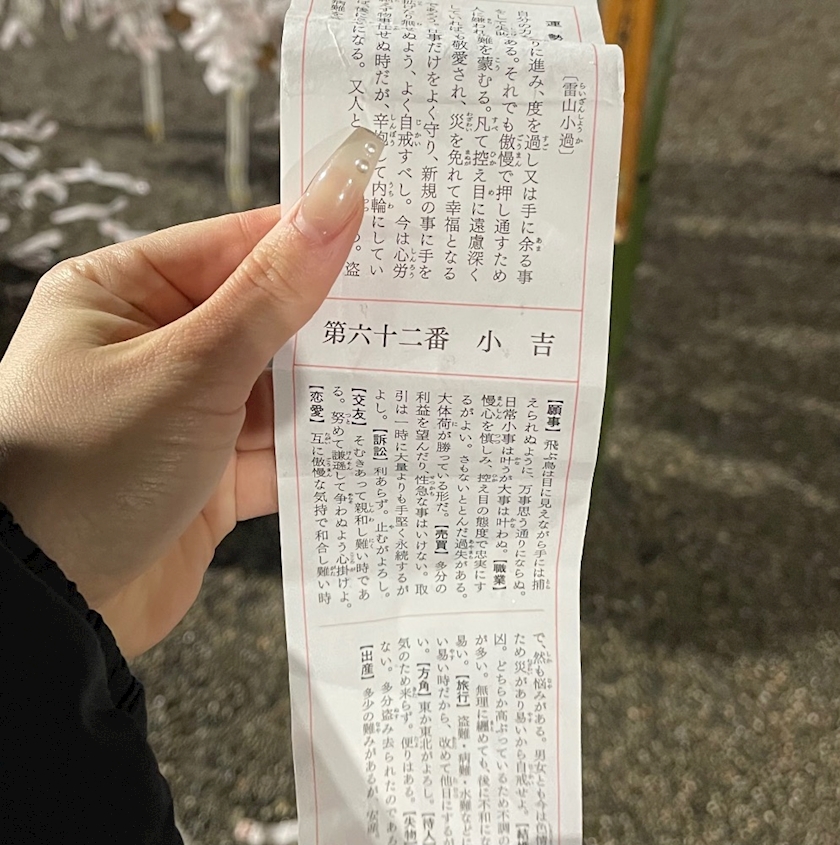 運勢
〔雷山小過〕
りに進み、度を過し又は手に余る事
ある。それでも傲慢で押し通すため
嫌われ難を蒙むる。凡て控え目に遠慮深く
していれば敬愛され、災を免れて幸福となる
事だけをよく守り、新規の事に手を
せぬよう、よく自戒すべし。今は心労
物事任せぬ時だが、辛抱して内輪にしてい
になる。又人と
。盗
第六十二番 小吉
【願事】飛ぶ鳥は目に見えながら手には捕
えられぬように、万事思う通りにならぬ。
日常小事は叶うが大事は叶わぬ。【職業】
慢心を慎しみ、控え目の態度で忠実にす
るがよい。さもないととんだ過失がある。
大体荷が勝っている形だ。【売買】多分の
利益を望んだり、性急な事はいけない。取
引は一時に大量よりも手堅く永続するが
よし。【訴訟】利あらず。止むがよろし。
【交友】そむきあって親和し難い時であ
る。努めて謙遜して争わぬよう心掛けよ。
【恋愛】互に傲慢な気持で和合し難い時
で、然も悩みがある。男女とも今は色情
ため災があり易いから自戒せよ。【結
凶。どちらか高ぶっているため不調の
が多い。無理に纏めても、後に不和にな
易い。【旅行】盗難・病難・水難などに
い易い時だから、改めて他日にするが
い。【方角】東か東北がよろし。【待人】
気のため来らず。便りはある。【失物】
ない。多分盗み去られたのであろ
【出産】多少の難みがあるが、安産